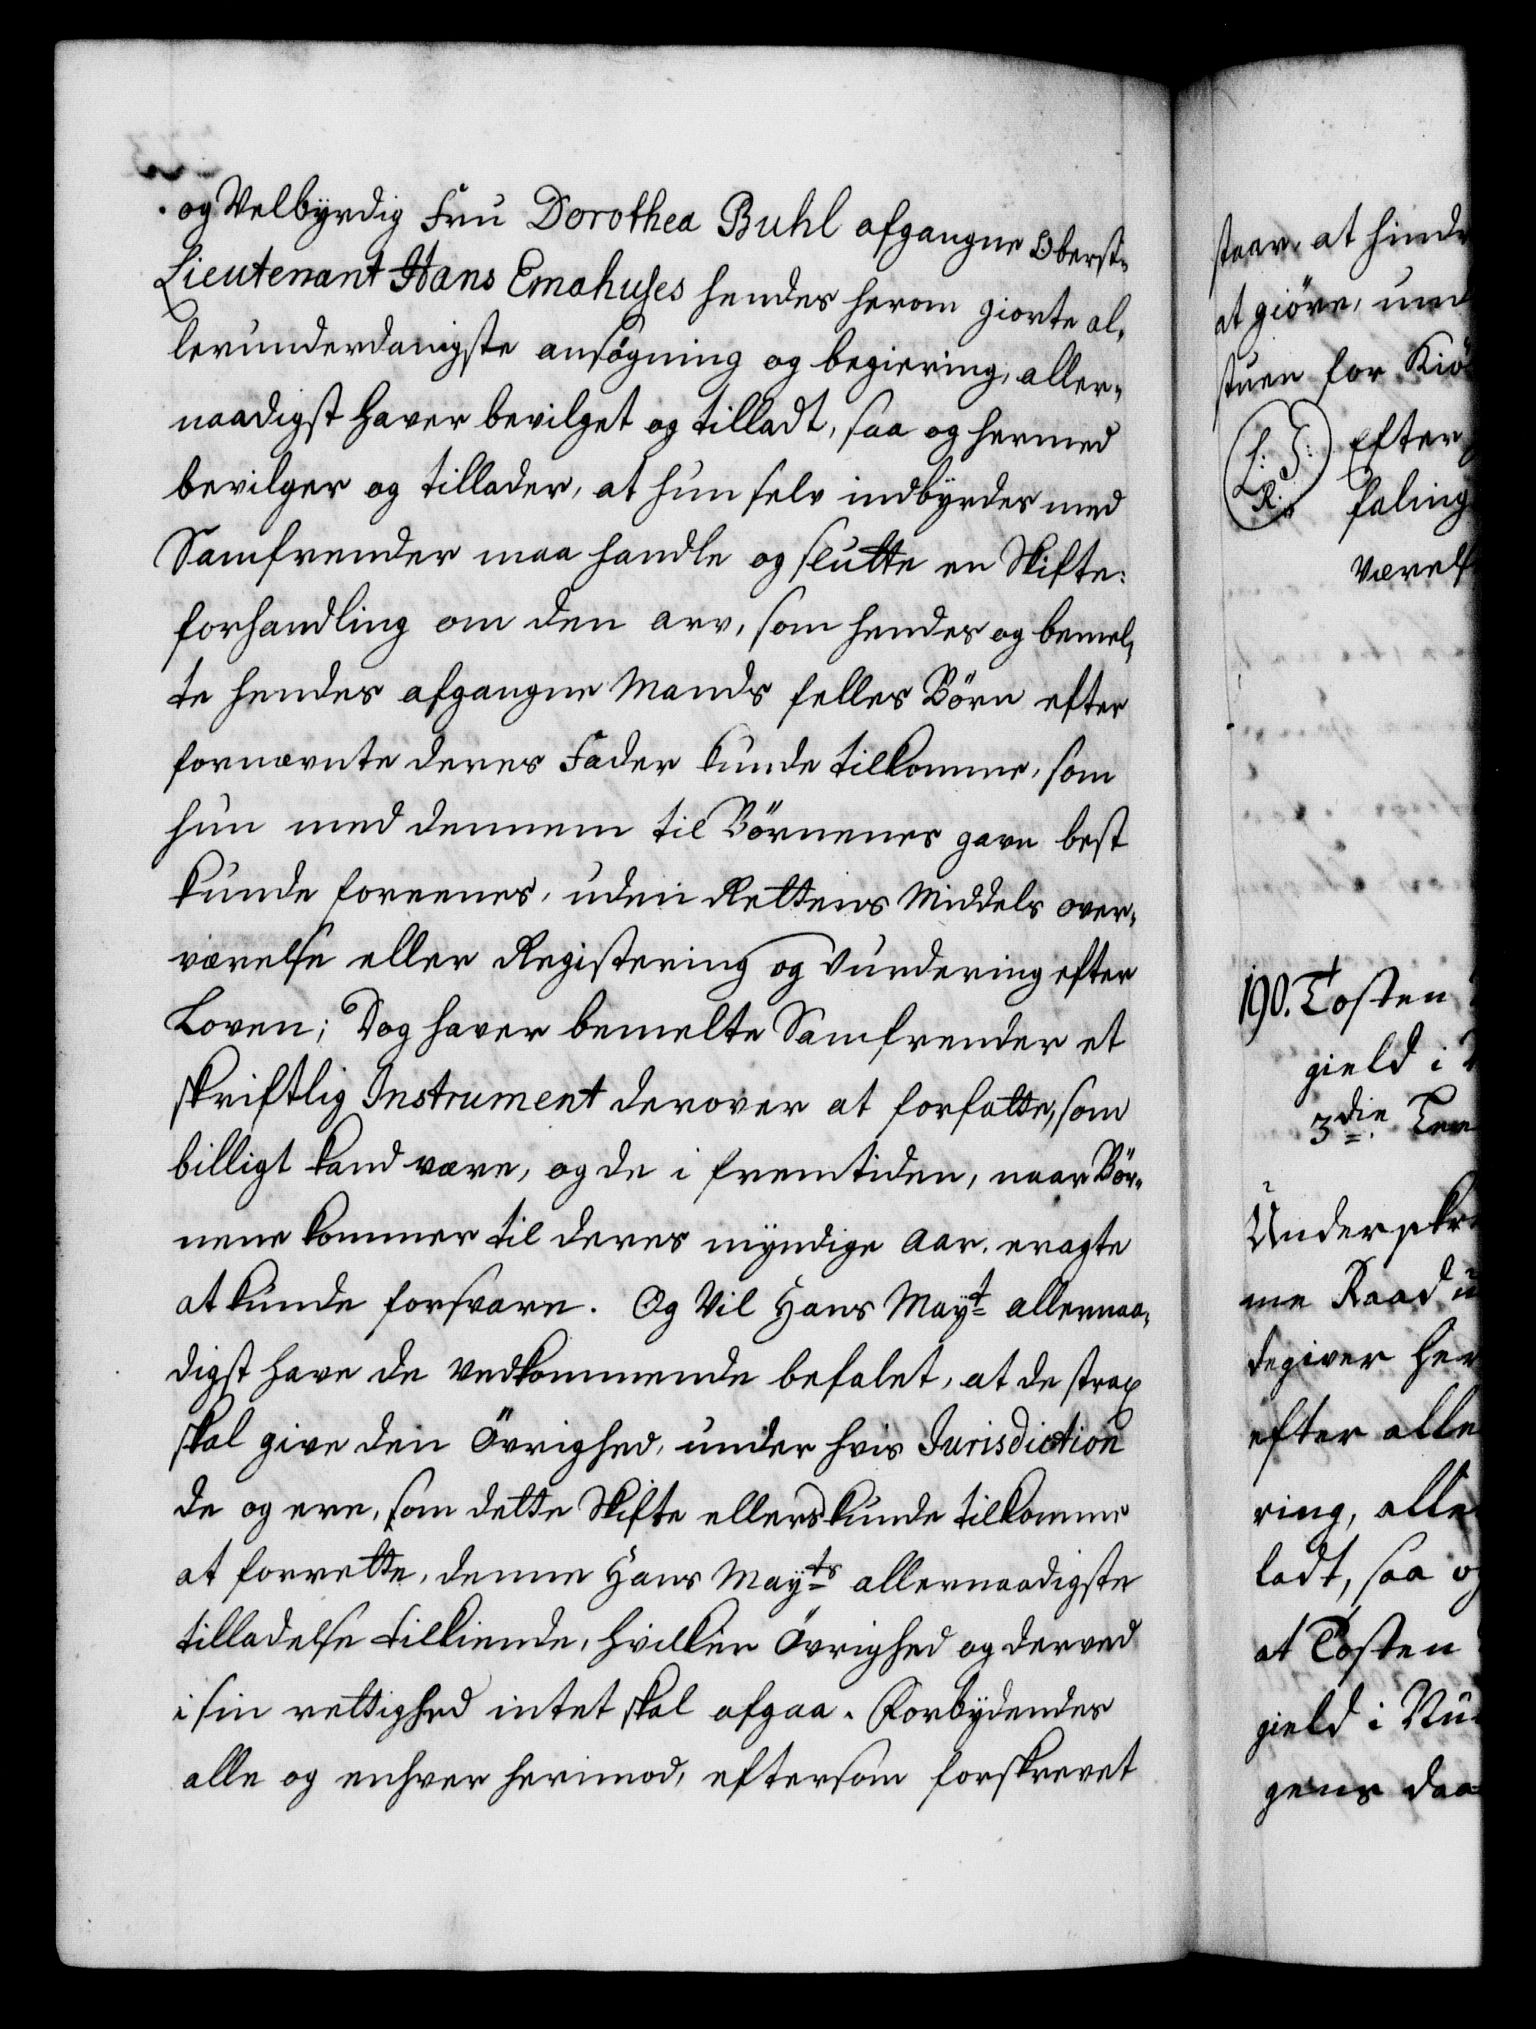 og Velbyrdig Fru Dorothea Buhl afgangne Oberst-
Lieutenant Hans Emahuses hendes herom giorte al-
lerunderdanigste ansøgning og begiering, aller-
naadigst haver bevilget og tilladt, saa og hermed
bevilger og tillader, at hun selv indbyrdes med
Samfrender maa handle og slutte en Skifte-
forhandling om den arv, som hendes og bemel-
te hendes afgangne Mands felles Børn efter
fornævnte deres Fader kunde tilkomme, som
hun med dennem til Børnenes gavn best
kunde foreenes, uden Rettens Middels over-
værelse eller Registering og Vurdering efter
Loven; Dog haver bemelte Samfrender et
skriftlig Instrument derover at forfatte, som
billigt kand være, og de i fremtiden, naar Bør-
nene kommer til deres myndige Aar, eragte
at kunde forsvare. Og Vil Hans Mayt allernaa-
digst have de Vedkommende befalet, at de strax
skal give den Øvrighed, under hvis Jurisdiction
de og ere, som dette Skifte ellers kunde tilkomme
at forrette, denne Hans Mayts allernaadigste
tilladelse tilkiende, hvilken Øvrighed og derved
i sin rettighed intet skal afgaa. Forbydendes
alle og enhver herimod, eftersom forskrevet
staar, at hindr
at giøre, und
stuen for Kiø
L: S:
R.
Efter
faling
værels
190. Tosten
gield i
3die
Underskr
me Raad
degiver Her
efter alle
ring, alle
ladt, saa og
at Tosten
gield i Nu
gens daa